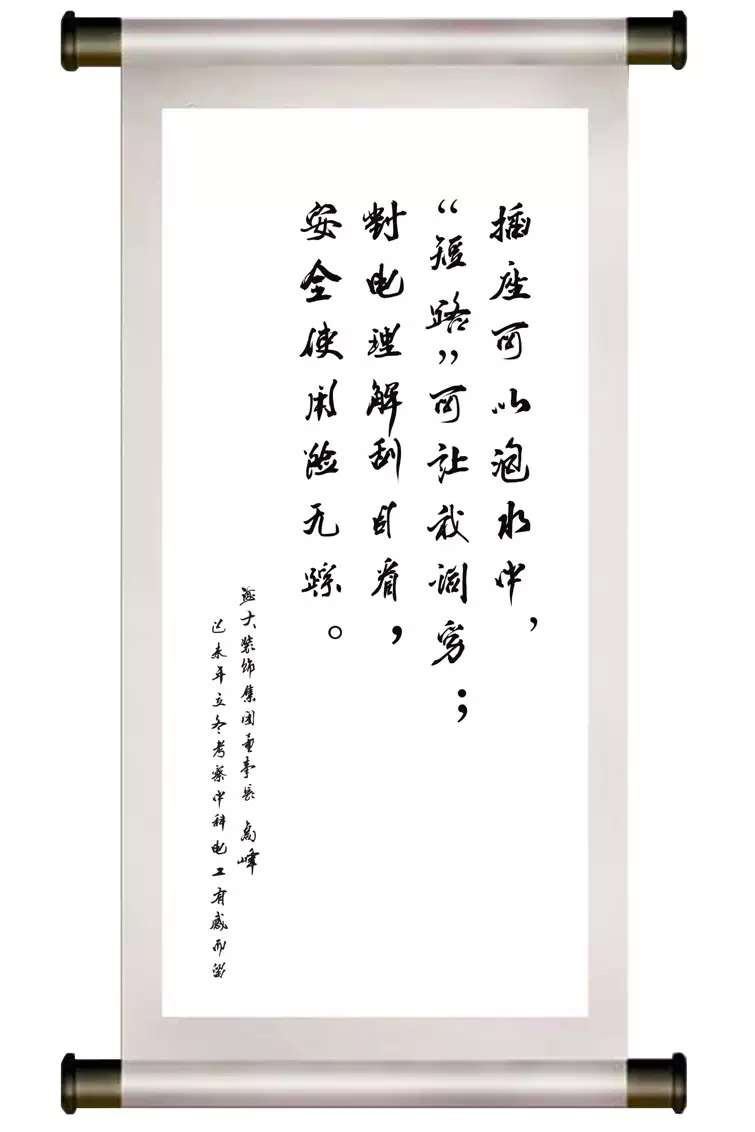 插座可以泡水中，
“短路”可让我词穷；
對电理解刮目看，
安全使用险无踪。
盛大装饰集团董事长 高峰
己未年立冬考察中科电工有感而